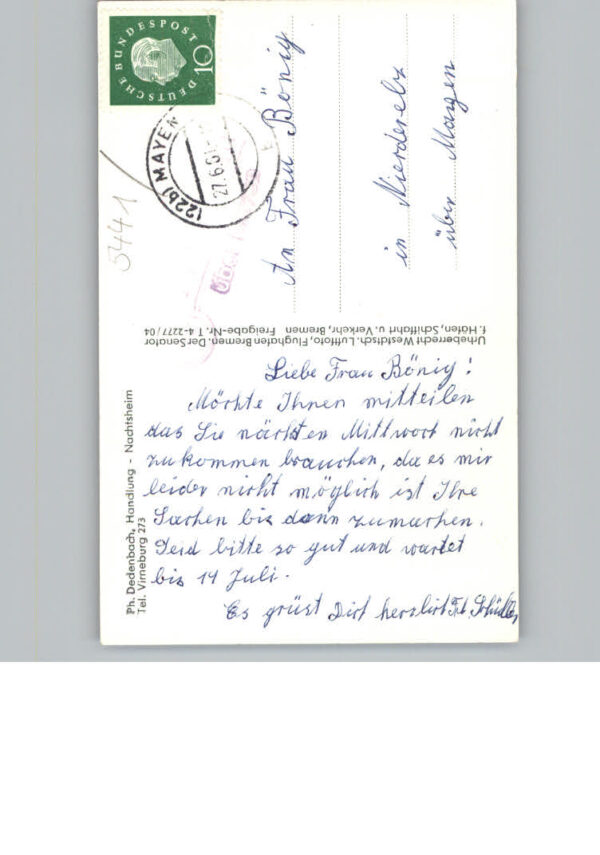 DEUTSCHE BUNDESPOST
10
(22b) MAYEN
27.6.61
über
5441
An Frau Bönig
in Nierderelz
über Mayen
Urheberrecht Westdtsch. Luftfoto, Flughafen Bremen. Der Senator
f. Häfen, Schiffahrt u. Verkehr, Bremen Freigabe-Nr. T 4-2277/04
Ph. Dedenbach, Handlung - Nachtsheim
Tel. Virneburg 273
Liebe Frau Bönig!
Möchte Ihnen mitteilen
das Sie nächsten Mittwoch nicht
zukommen brauchen, da es mir
leider nicht möglich ist Ihre
Sachen bis dann zumachen.
Seid bitte so gut und wartet
bis 14 Juli.
Es grüst Dich herzlich